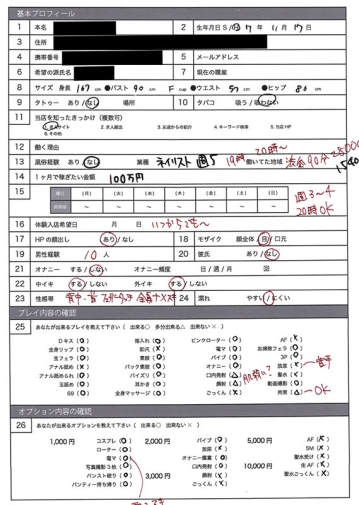 基本プロフィール
1 本名 2 生年月日 S / H 17 年 11 月 17 日
3 住所
4 携帯番号 5 メールアドレス
6 希望の源氏名 7 現在の職業
8 サイズ 身長 167 cm ●バスト 90 cm F cup ●ウエスト 57 cm ●ヒップ 86 cm
9 タトゥー あり / なし 場所 10 タバコ 吸う / 吸わない
11 当店を知ったきっかけ (複数可)
1. 求人サイト 2. 求人雑誌 3. お店からの紹介 4. キーワード検索 5. 当店HP
6. その他
12 働く理由
13 風俗経験 あり / なし 業種 ネイリスト 週5 19時 20時〜 働いてた地域 渋谷 90分 28000
1540
14 1ヶ月で稼ぎたい金額 100万円
15 曜日 (月) (火) (水) (木) (金) (土) (日)
時間帯 ~ ~ ~ ~ ~ ~ ~
週3〜4
20時OK
16 体験入店希望日 月 日 いつからでも〜
17 HPの顔出し あり / なし 18 モザイク 顔全体 / 目 / 口元
19 男性経験 10 人 20 彼氏 あり / なし
21 オナニー する / しない オナニー頻度 日 / 週 / 月 回
22 中イキ する / しない 外イキ する / しない
23 性感帯 背中・首 24 濡れ やすい / にくい
プレイ内容の確認
25 あなたが出来るプレイを教えて下さい ( 出来る○ 多分出来る△ 出来ない× )
Dキス 指入れ ピンクローター AF
全身リップ 即尺 電マ お掃除フェラ
生フェラ 素股 バイブ 3P
アナル舐め バック素股 オナニー 放尿
アナル舐められ パイズリ 口内発射 聖水
玉舐め 耳かき 顔射 動画撮影
69 全身マッサージ ごっくん 拘束
肌弱い? OK
オプション内容の確認
26 あなたが出来るオプションを教えて下さい ( 出来る○ 出来ない× )
1,000円 コスプレ 2,000円 バイブ 5,000円 AF
ローター 放尿 SM
電マ オナニー鑑賞 聖水受け
写真撮影3枚 口内発射 10,000円 生AF
パンスト破り 3,000円 顔射 聖水ごっくん
パンティー持ち帰り ごっくん